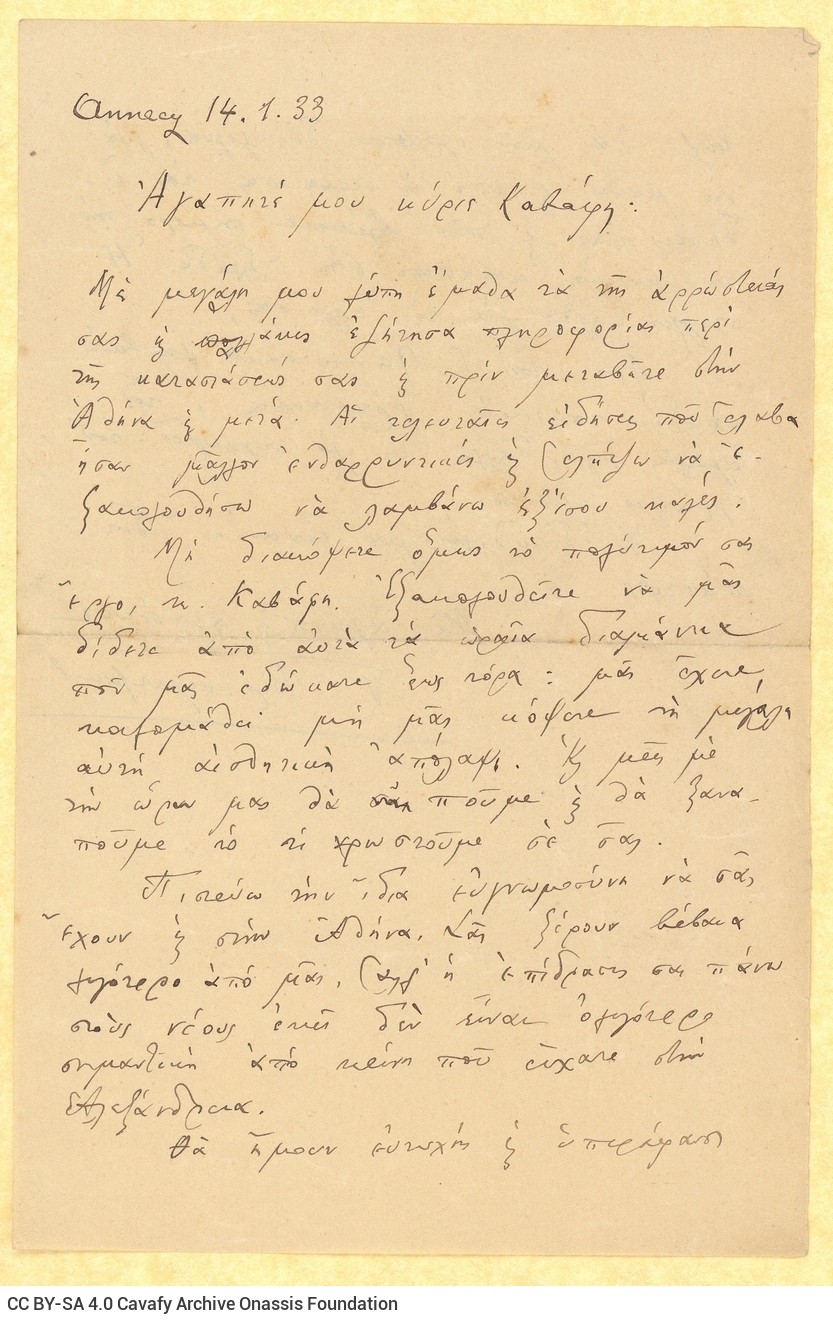 Annecy 14.1.33
Ἀγαπητέ μου κύριε Καβάφη:
Μὲ μεγάλη μου λύπη ἔμαθα τὰ τῆς ἀρρώστειάς
σας ϗ πολλάκις ἐζήτησα πληροφορίας περὶ
τῆς καταστάσεώς σας ϗ πρὶν μεταβῆτε στὴν
Ἀθήνα ϗ μετά. Αἱ τελευταῖες εἰδήσεις ποῦ ἔλαβα
ἦσαν μᾶλλον ἐνθαρρυντικές ϗ ἐλπίζω νὰ ἐ-
ξακολουθήσω νὰ λαμβάνω ἐξ ἴσου καλές.
Μὴ διακόψετε ὅμως τὸ πολύτιμόν σας
ἔργο, κ. Καβάφη. Ἐξακολουθεῖτε νὰ μᾶς
δίδετε ἀπὸ αὐτὰ τὰ ὡραῖα διαμάντια
ποῦ μᾶς ἐδώκατε ἕως τώρα: μᾶς ἔχετε
καλομάθει μὴ μᾶς κόψετε τὴ μεγάλη
αὐτὴ αἰσθητικὴ ἀπόλαψι. Κ' ἐμεῖς μὲ
τὴν ὥραν μας θὰ ποῦμε ϗ θὰ ξανα-
ποῦμε τὸ τί χρωστοῦμε σὲ σᾶς.
Πιστεύω τὴν ἴδια εὐγνωμοσύνη νὰ σᾶς
ἔχουν ϗ στὴν Ἀθήνα. Σᾶς ξέρουν βέβαια
λιγότερο ἀπὸ μᾶς, ἀλλ' ἡ ἐπίδρασίς σας πάνω
στοὺς νέους ἐκεῖ δὲν εἶναι ὀλιγότερο
σημαντικὴ ἀπὸ κείνη ποῦ εἴχατε στὴν
Ἀλεξάνδρεια.
Θὰ ἤμουν εὐτυχής ϗ ὑπερήφανος
CC BY-SA 4.0 Cavafy Archive Onassis Foundation